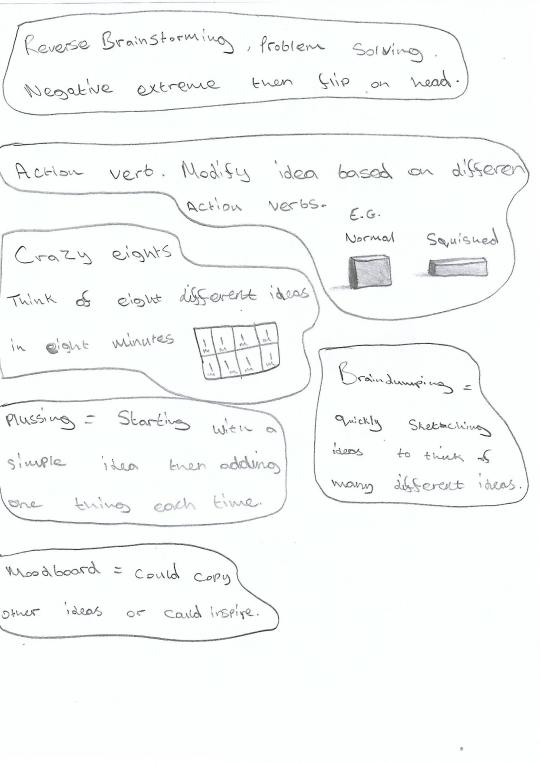 Reverse Brainstorming, Problem Solving.
Negative extreme then flip on head.
Action verb. Modify idea based on different
Action verbs.
E.G.
Normal Squished
Crazy eights
Think of eight different ideas
in eight minutes
Braindumping =
quickly Sketching
ideas to think of
many different ideas.
Plussing = Starting with a
simple idea then adding
one thing each time.
Moodboard = Could copy
other ideas or could inspire.